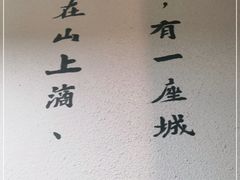 ，有一座城
在山上滴、